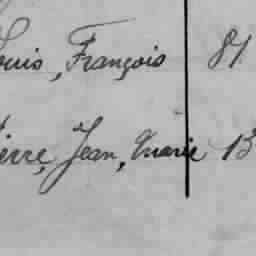 Louis, François 81
Pierre, Jean, Marie 13